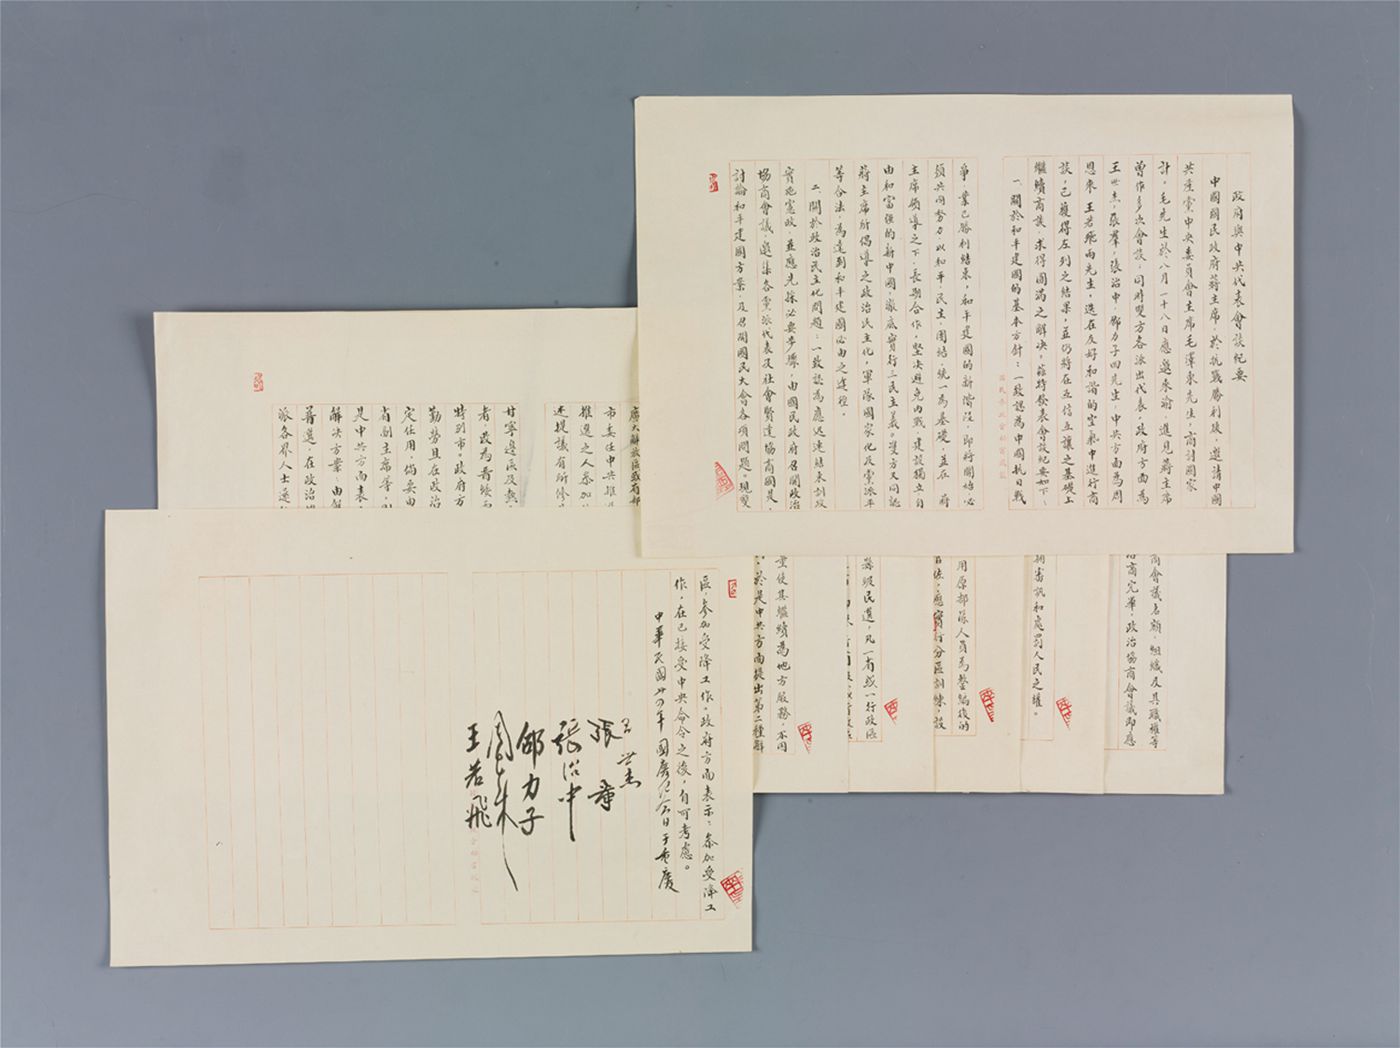 政府與中共代表會談紀要
中國國民政府蔣主席,於抗戰勝利後,邀請中國
共產黨中央委員會主席毛澤東先生,商討國家
計,毛先生於八月二十八日應邀來渝,進見蔣主席
曾作多次會談,同時雙方各派出代表,政府方面為
王世杰,張羣,張治中,邵力子四先生,中共方面為周
恩來 王若飛兩先生,迭在友好和諧的空氣中進行商
談,已獲得左列之結果,並仍將在互信互讓之基礎上
繼續商談,求得圓滿之解決,茲特發表會談紀要如下:
一、關於和平建國的基本方針:一致認為中國抗日戰
爭,業已勝利結束,和平建國的新階段,即將開始必
須共同努力以和平,民主,團結統一為基礎,並在
主席領導之下,長期合作,堅決避免內戰 建設獨立自
由和富強的新中國,徹底實行三民主義。雙方又同認
蔣主席所倡導之政治民主化,軍隊國家化及黨派平
等合法,為達到和平建國必由之途徑。
二、關於政治民主化問題:一致認為應迅速結束訓政
實施憲政,並應先採必要步驟,由國民政府召開政治
協商會議,邀集各黨派代表及社會賢達協商國是,
討論和平建國方案,及召開國民大會各項問題。現雙
商會議名額,組織及其職權等
洽商完畢,政治協商會議即應
審訊和處罰人民之權。
用原部隊人員為整編後的
應實行分區訓練,設
縣級民選,凡一省或一行政區
量使其繼續為地方服務,不同
於是中共方面提出第二種解
廣大解放區或有部
市委任中共推
推選之人參加
述提議有所修
甘寧邊區及熱
者,改為晉綏
特別市。政府方
勤勞且在政治
定任用,倘要由
省副主席等,則
是中共方面表
解決方案:由解
普選,在政治
派各界人士還
區,參加受降工作。政府方面表示:參加受降工
作,在已接受中央命令之後,自可考慮。
中華民國卅四年 國慶紀念日 于重慶
王世杰
張羣
張治中
邵力子
周恩來
王若飛